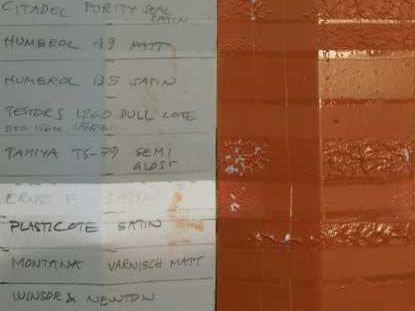 CITADEL PURITY SEAL
SATIN
HUMBROL 49 MATT
HUMBROL 135 SATIN
TESTORS 1260 DULL COTE
TAMIYA TS-79 SEMI
GLOSS
SATIN
PLASTICOTE SATIN
MONTANA VARNISCH MATT
WINSOR & NEWTON